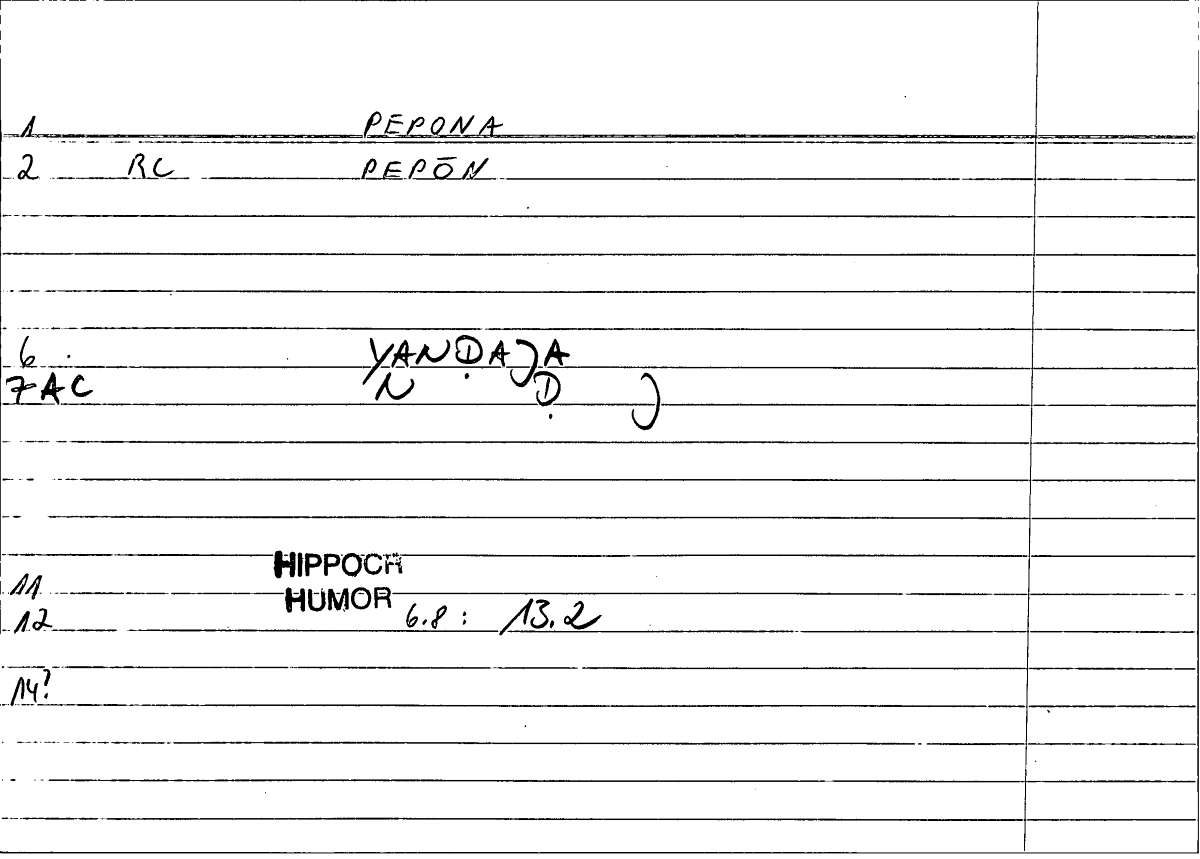 1 PEPONA
2 RC PEPŌN
6 YANḌAJA
7 AC N Ḍ J
11 HIPPOCR
HUMOR
12 6.8 : 13.2
14?